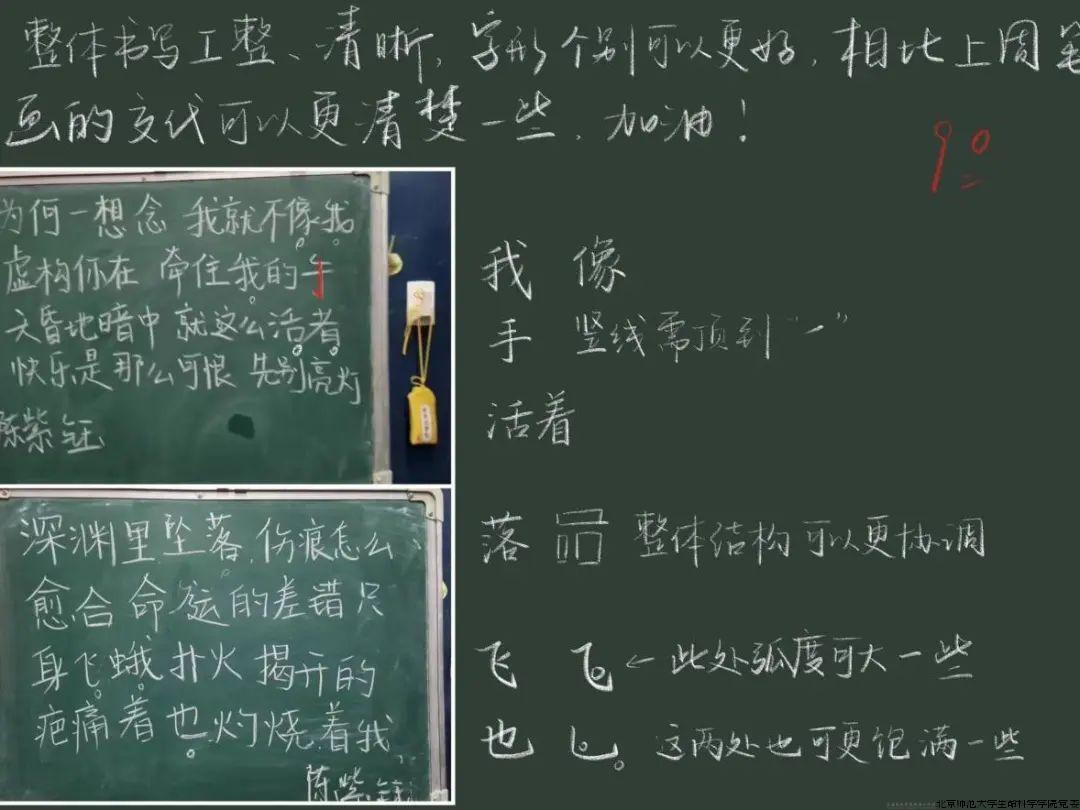 整体书写工整、清晰，字形个别可以更好，相比上周笔
画的交代可以更清楚一些，加油！
90
为何一想念 我就不像我
虚构你在 牵住我的手
天昏地暗中 就这么活着
快乐是那么可恨 先别亮灯
陈紫钰
我 像
手 竖线需顶到“㇀”
活着
深渊里坠落 伤痕怎么
愈合 命运的差错 只
身飞蛾扑火 揭开的
疤痛着 也灼烧着我
陈紫钰
落 整体结构可以更协调
飞 飞 ← 此处弧度可大一些
也 乚 这两处也可更饱满一些
北京师范大学生命科学学院党委